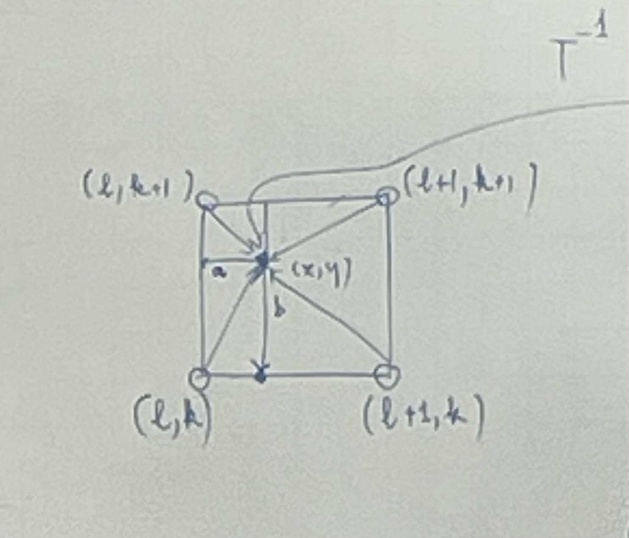 T⁻¹
(l,k+1) (l+1,k+1)
a (x,y)
b
(l,k) (l+1,k)